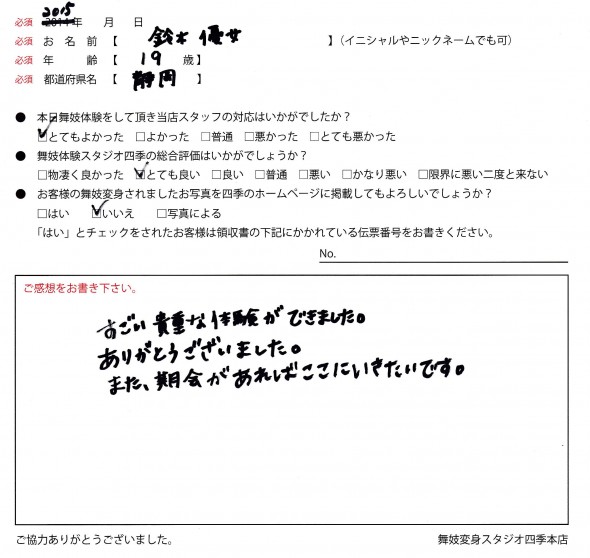 2015
必須 2014年 月 日
必須 お 名 前 【 鈴木 優女 】(イニシャルやニックネームでも可)
必須 年 齢 【 19 歳】
必須 都道府県名 【 静岡 】
● 本日舞妓体験をして頂き当店スタッフの対応はいかがでしたか?
☑とてもよかった □よかった □普通 □悪かった □とても悪かった
● 舞妓体験スタジオ四季の総合評価はいかがでしょうか?
□物凄く良かった ☑とても良い □良い □普通 □悪い □かなり悪い □限界に悪い二度と来ない
● お客様の舞妓変身されましたお写真を四季のホームページに掲載してもよろしいでしょうか?
□はい ☑いいえ □写真による
「はい」とチェックをされたお客様は領収書の下記にかかれている伝票番号をお書きください。
No.
ご感想をお書き下さい。
すごい貴重な体験ができました。
ありがとうございました。
また、期会があればここにいきたいです。
ご協力ありがとうございました。 舞妓変身スタジオ四季本店